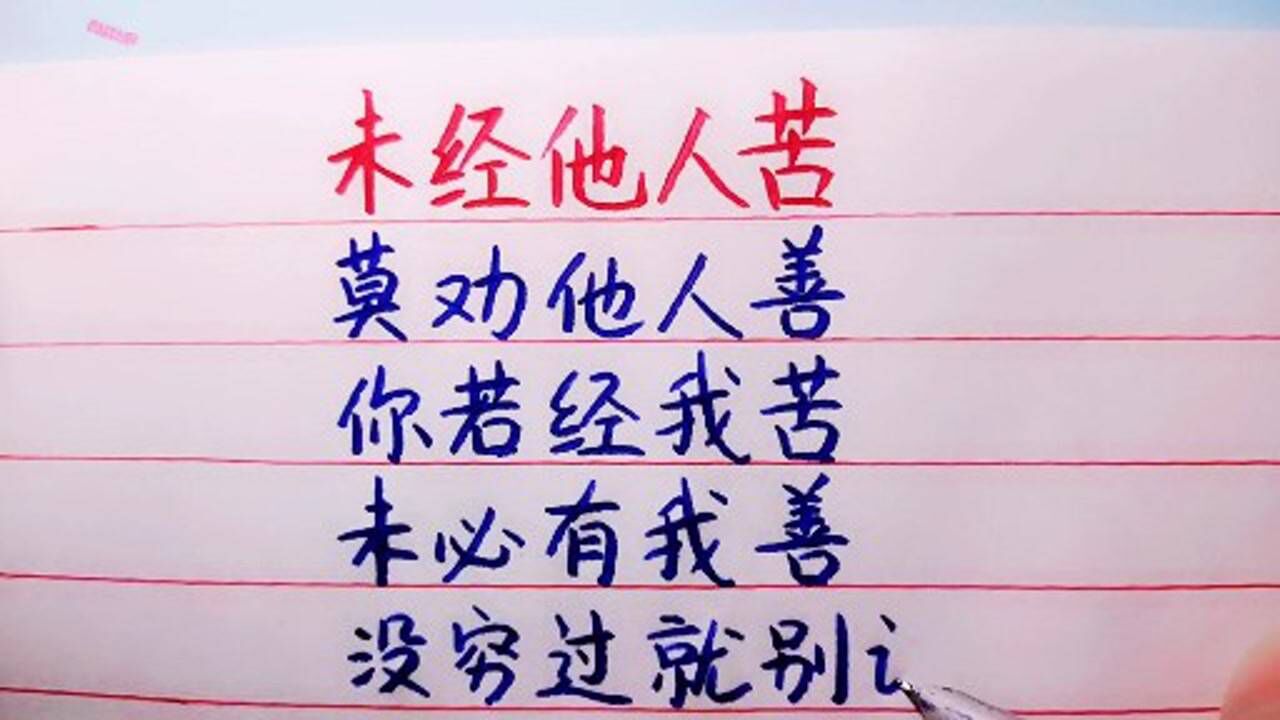 未经他人苦
莫劝他人善
你若经我苦
未必有我善
没穷过就别